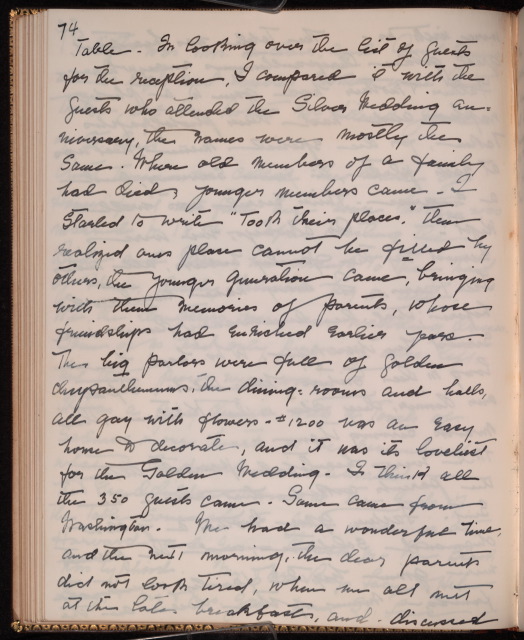 74
Table. In looking over the list of guests
for the reception, I compared it with the
guests who attended the Silver Wedding an-
niversary, the names were mostly the
Same. Where old members of a family
had died, younger members came. I
Started to write "Took their places." then
realized ones place cannot be filled by
others, the younger generation came, bringing
with them memories of parents, whose
friendships had enriched earlier years.
The big parlors were full of golden
chrysanthemums, the dining-rooms and halls,
all gay with flowers - #1200 was an easy
home to decorate, and it was its loveliest
for the Golden Wedding. I think all
the 350 guests came. Some came from
Washington. We had a wonderful time,
and the next morning, the dear parents
did not look tired, when we all met
at the late breakfast, and discussed